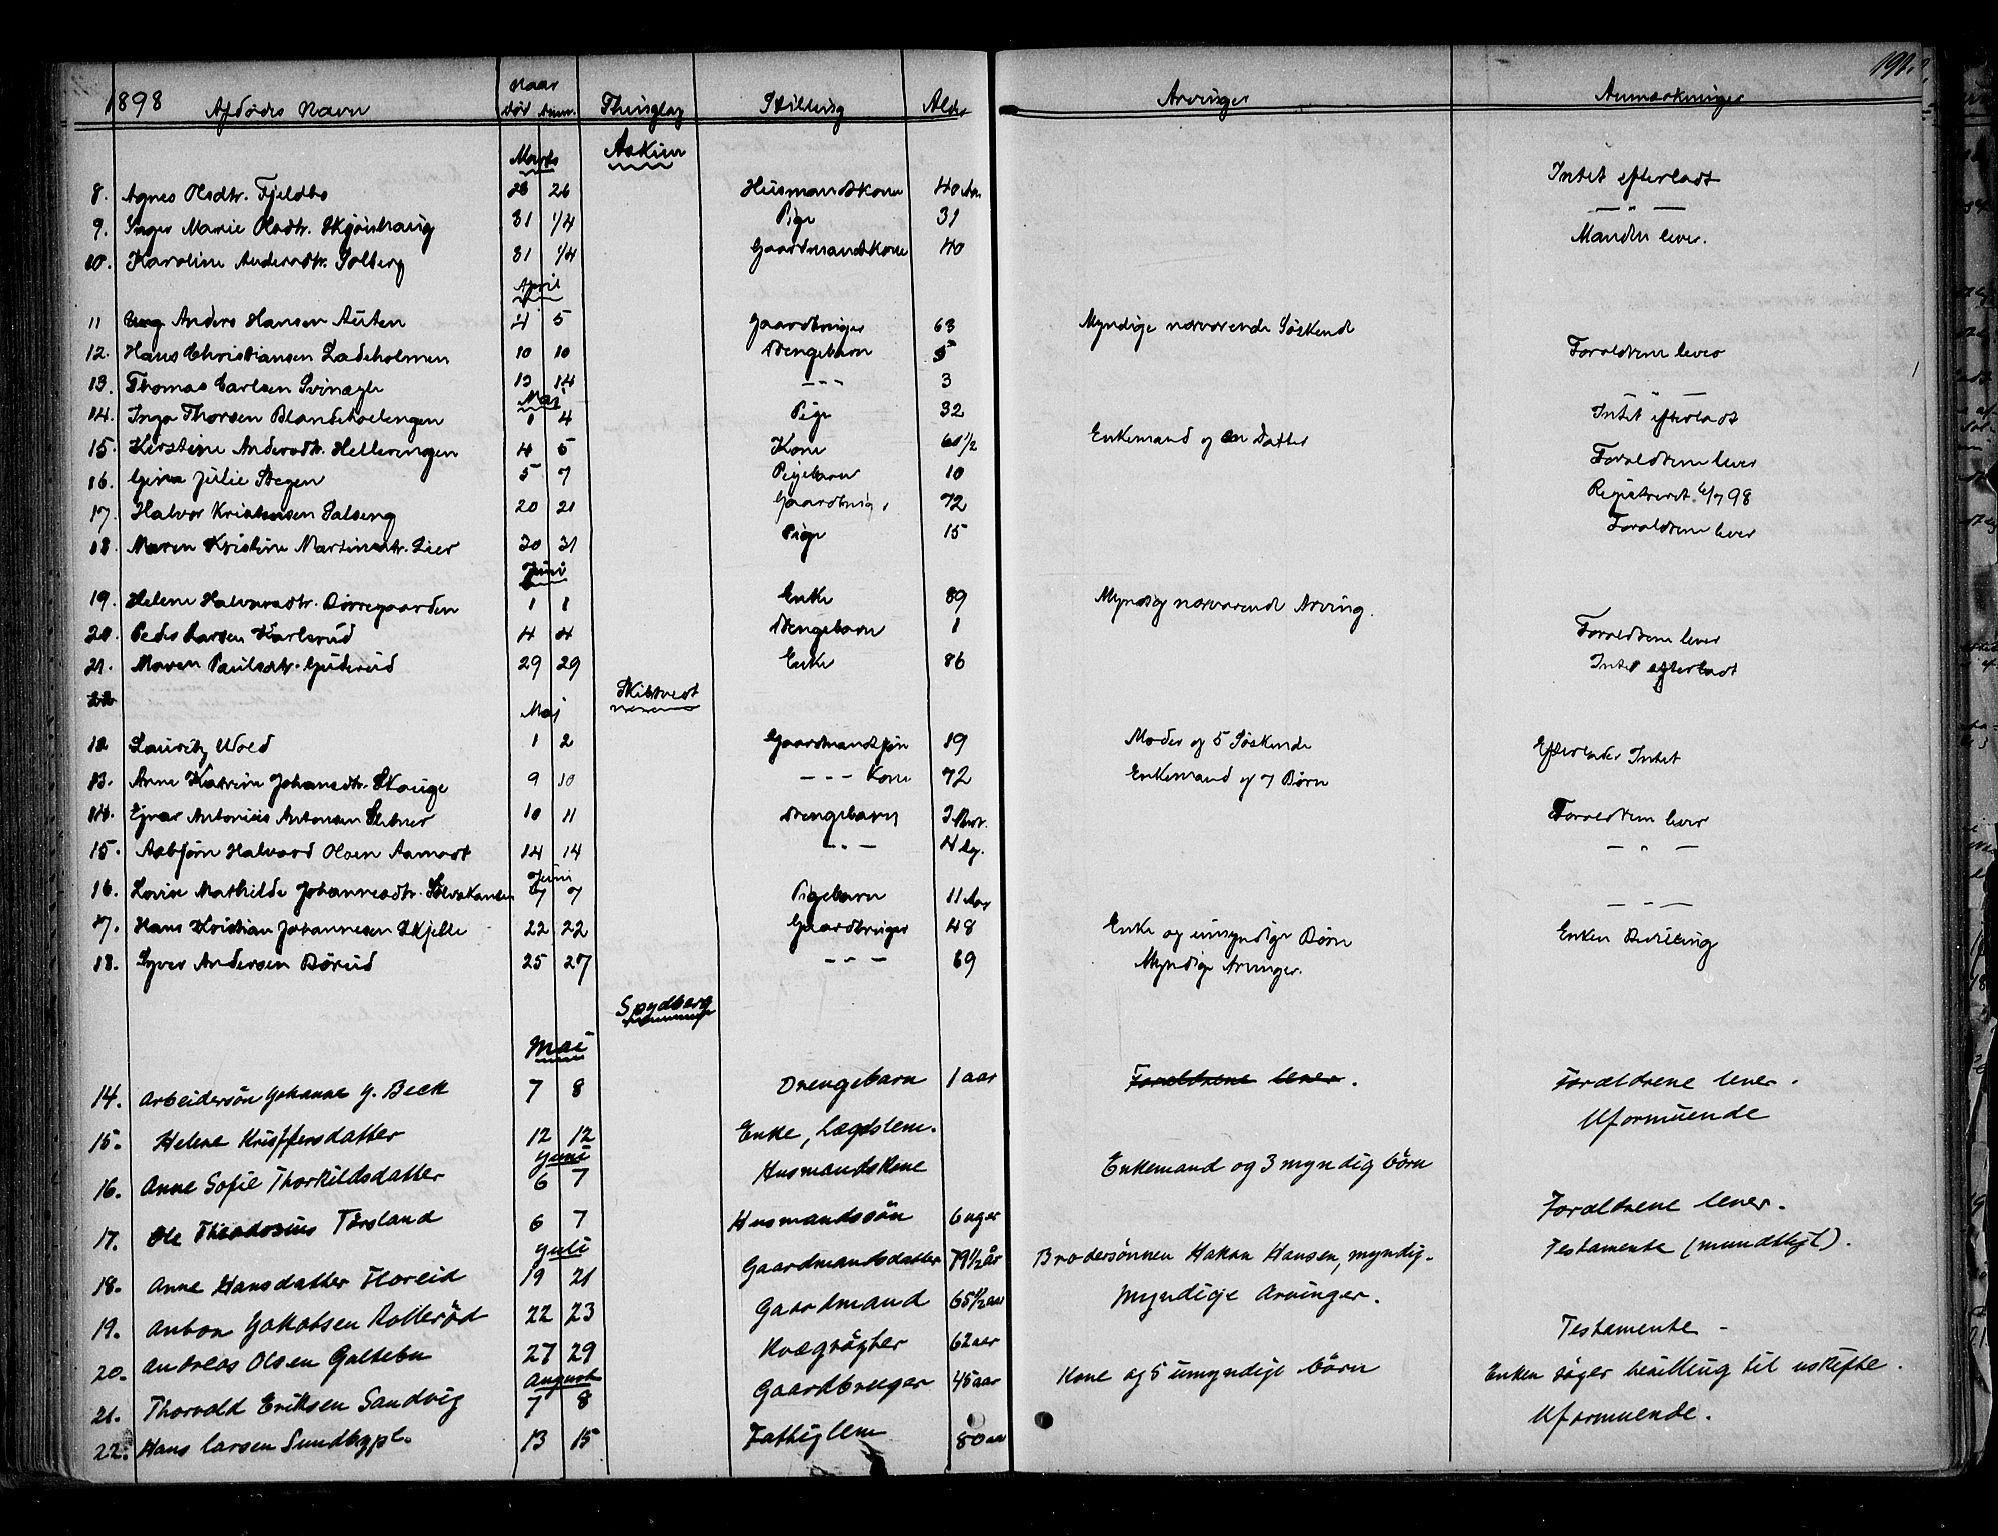 1898 Afdødes Navn Naar død anm. Thinglag Stilling Alder Arvinger Anmærkninger
Marts Askim
8. Agnes Olsdtr. Fjeldbo 26 26 Husmandskone 40 Aar Intet efterladt
9. Inger Marie Olsdtr. Skjønhaug 31 1/4 Pige 31 — " —
10. Karoline Andersdtr. Solberg 31 1/4 Gaardmandskone 40 Manden lever.
April
11 Anders Hansen Auten 4 5 Gaardbruger 63 Myndige nærværende Søskend
12. Hans Christiansen Ladeholmen 10 10 Drengebarn 5 Forældrene lever
13. Thomas Carlsen 13 14 - - - 3 "
Mai
14. Inga Thorsen 1 4 Pige 32 Intet efterladt
15. Kirstine Andersdtr. Hellerengen 4 5 Kone 60 1/2 Enkemand og en Datter
16. Gina Julie Stegen 5 7 Pigebarn 10 Forældrene lever
17. Halvor Kristensen Salseng 20 21 Gaardbruger 72 Registreret 6/7 98
18. Maren Kristine Martinsdtr. Lier 30 31 Pige 15 Forældrene lever
Juni
19. Helene Halvorsdtr. Børregaarden 1 1 Enke 89 Myndig nærværende Arving.
20. Peder Larsen Karlsrud 4 4 Drengebarn 1 Forældrene lever
21. Maren Paulsdtr. Guderud 29 29 Enke 86 Intet efterladt
22 Skibtvedt
Maj
12 Lauritz Wold 1 2 Gaardmandssøn 19 Moder og 5 Søskende Efterlader Intet
13. Anne Katrine Johansdtr. Skauge 9 10 - - - Kone 72 Enkemand og 7 Børn
14. Ejnar Antonius Antonsen 10 11 Drengebarn Forældrene lever
15. Asbjørn Halvard Olsen Aamodt 14 14 - " - 4 Dg. — " —
Juni
16. Lovise Mathilde Johannesdtr. 7 7 Pigebarn 11 Aar — " —
17. Hans Kristian Johannesen Skjelle 22 22 Gaardbruger 48 Enke og umyndige Børn Enken Bevilling
18. Syver Andersen Børud 25 27 - " - 69 Myndige Arvinger.
Spydberg
Mai
14. Arbeidersøn Johanne G. Beck 7 8 Drengebarn 1 aar Forældrene lever. Forældrene lever.
15. Helene Kristffersdatter 12 12 Enke, Lægdslem. Uformuende
Juni
16. Anne Sofie Thorkildsdatter 6 7 Husmandskone Enkemand og 3 myndig børn
17. Ole Theodosius Torsland 6 7 Husmandssøn 6 uger Forældrene lever.
Juli
18. Anne Hansdatter Floreid 19 21 Gaardmandsdatter 79 1/2 år Brodersønnen Hakon Hansen, myndig. Testamente (mundtligt).
19. Anton Jakobsen Kollerød 22 23 Gaardmand 65 1/2 aar Myndige arvinger.
20. Andreas Olsen Galtebu 27 29 Kvægrøgter 62 aar Testamente -
August
21. Thorvald Eriksen Sandvig 7 8 Gaardbruger 45 aar Kone og 5 umyndige børn Enken søger bevilling til uskifte.
22. Hans Larsen Sundbypl. 13 15 Fattiglem 80 aar Uformuende.